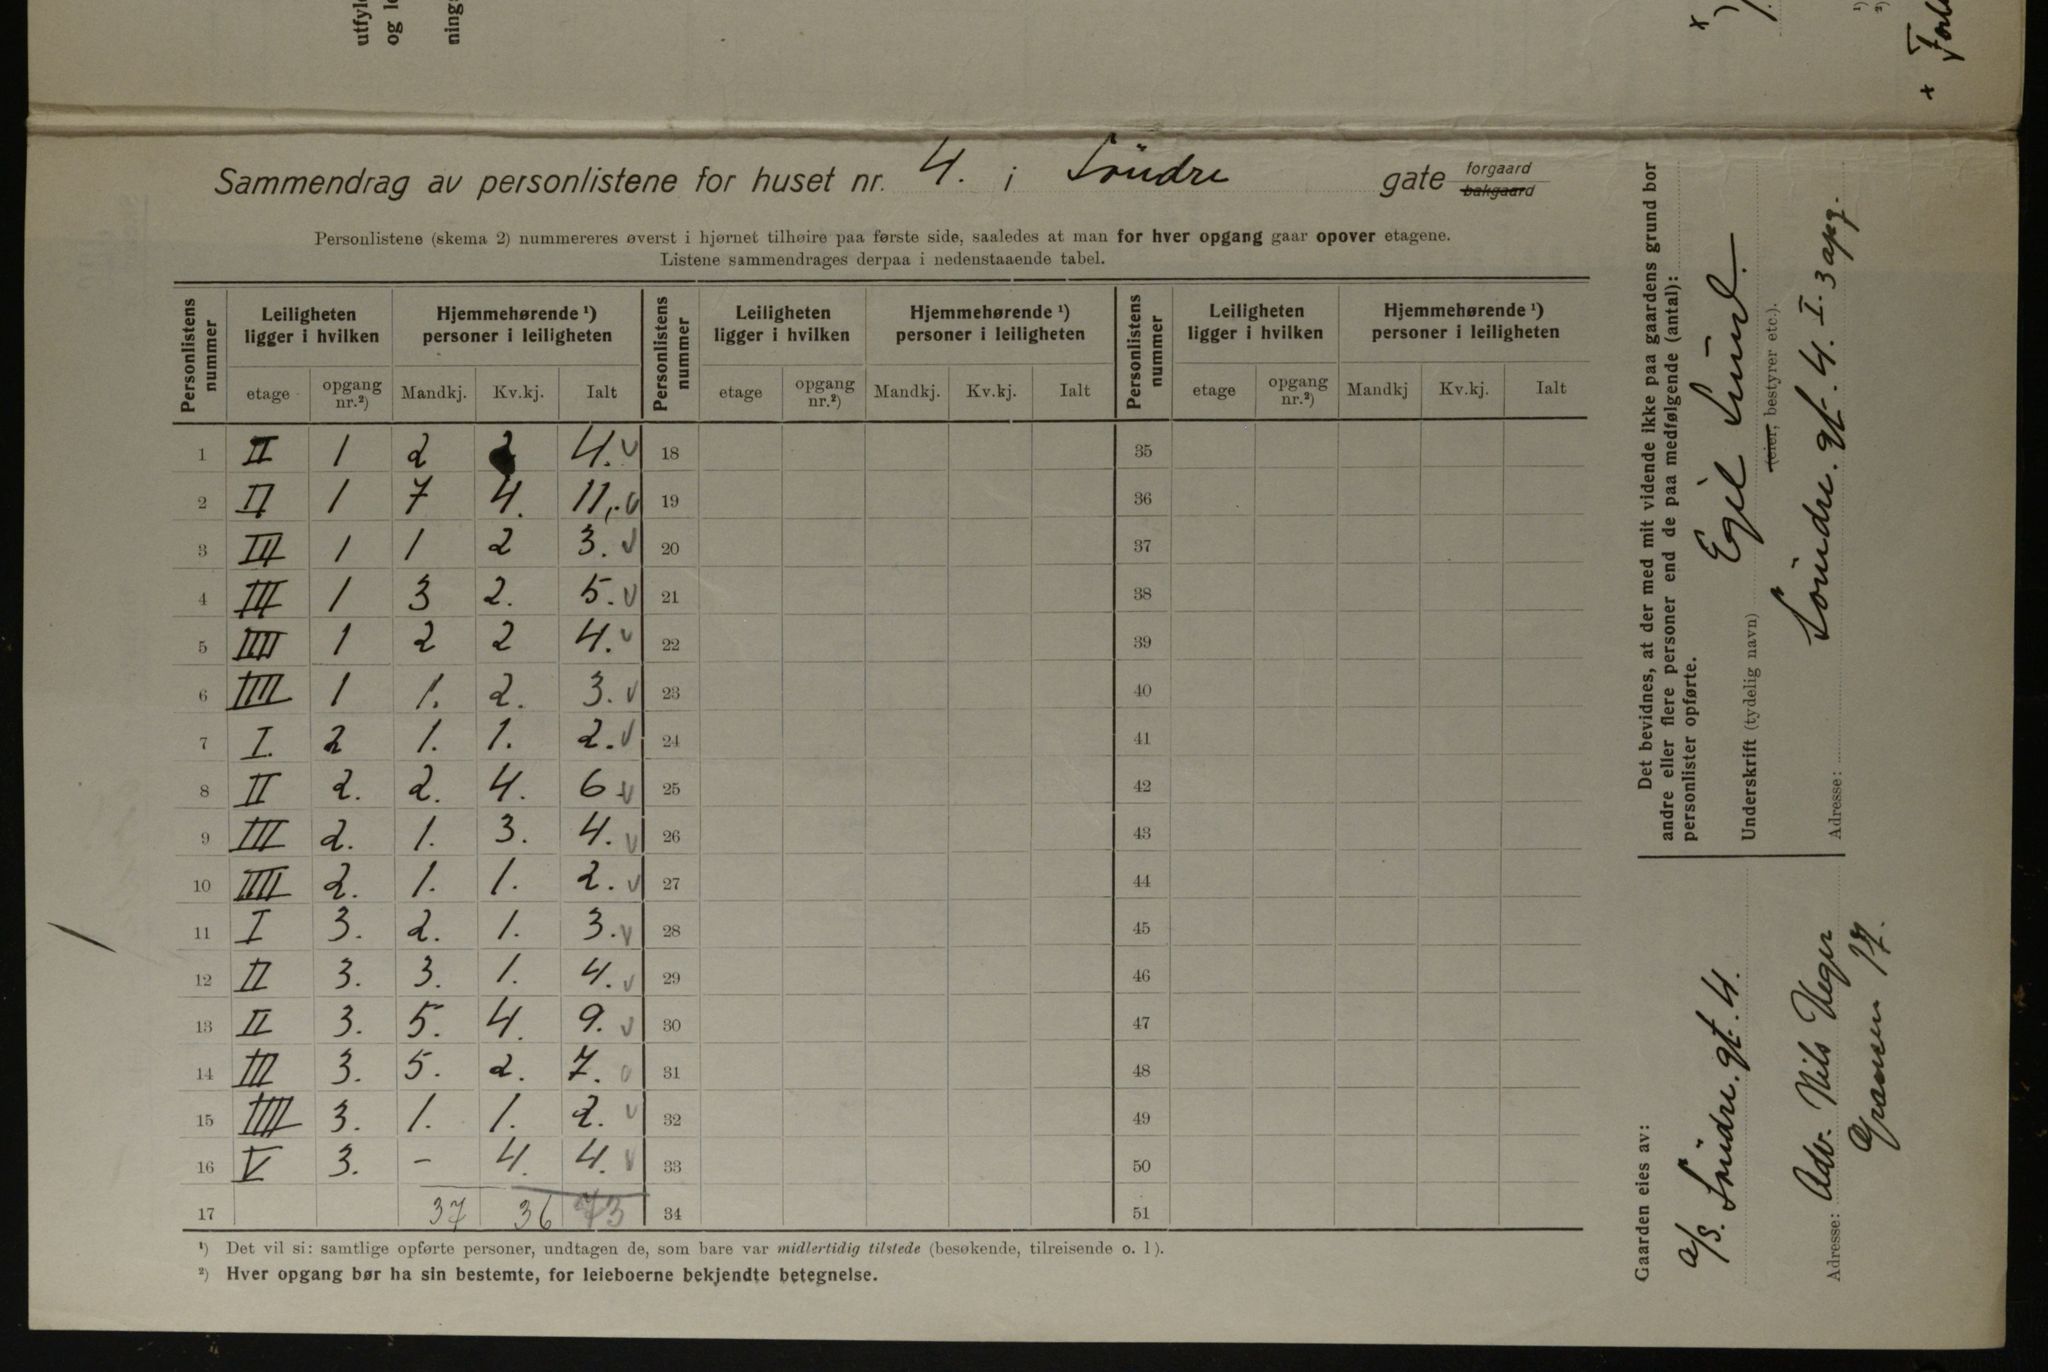 utfyl
og le
ning
x
¹)
²)
x
Sammendrag av personlistene for huset nr. 4. i Söndre gate forgaard bakgaard
Personlistene (skema 2) nummereres øverst i hjørnet tilhøire paa første side, saaledes at man for hver opgang gaar opover etagene.
Listene sammendrages derpaa i nedenstaaende tabel.
Personlistens nummer | Leiligheten ligger i hvilken | Hjemmehørende ¹) personer i leiligheten | Personlistens nummer | Leiligheten ligger i hvilken | Hjemmehørende ¹) personer i leiligheten | Personlistens nummer | Leiligheten ligger i hvilken | Hjemmehørende ¹) personer i leiligheten
etage | opgang nr.²) | Mandkj. | Kv.kj. | Ialt | etage | opgang nr.²) | Mandkj. | Kv.kj. | Ialt | etage | opgang nr.²) | Mandkj | Kv.kj. | Ialt
1 II 1 2 2 4. 18 35
2 II 1 7 4. 11, 19 36
3 III 1 1 2 3. 20 37
4 III 1 3 2. 5. 21 38
5 IIII 1 2 2 4. 22 39
6 IIII 1 1. 2. 3. 23 40
7 I. 2 1. 1. 2. 24 41
8 II 2. 2. 4. 6 25 42
9 III 2. 1. 3. 4. 26 43
10 IIII 2. 1. 1. 2. 27 44
11 I 3. 2. 1. 3. 28 45
12 II 3. 3. 1. 4. 29 46
13 II 3. 5. 4. 9. 30 47
14 III 3. 5. 2. 7. 31 48
15 IIII 3. 1. 1. 2. 32 49
16 V 3. – 4. 4. 33 50
17 37 36 73 34 51
¹) Det vil si: samtlige opførte personer, undtagen de, som bare var midlertidig tilstede (besøkende, tilreisende o. l).
²) Hver opgang bør ha sin bestemte, for leieboerne bekjendte betegnelse.
Det bevidnes, at der med mit vidende ikke paa gaardens grund bor
andre eller flere personer end de paa medfølgende (antal):
personlister opførte.
Egil Lund.
Underskrift (tydelig navn)
(eier, bestyrer etc.).
Söndre. gt. 4. I. 3 opg.
Adresse:
Gaarden eies av:
a/s. Söndre. gt. 4.
Adresse: Adv. Nils Heger
Grænsen 17.